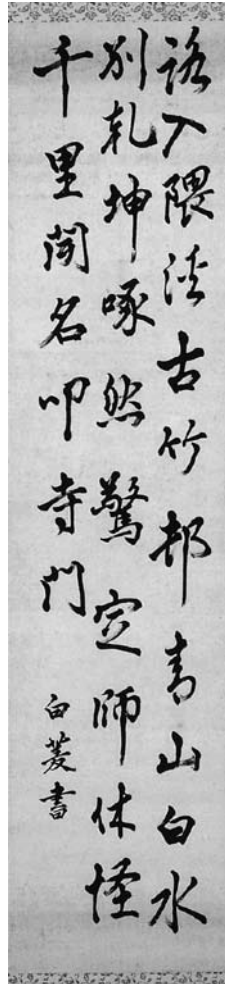 路入隈渓古竹邨青山白水
別乾坤啄然驚定師休怪
千里聞名叩寺門
白菱書